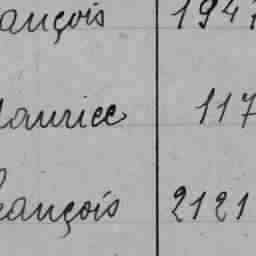 ançois 194
aurice 117
ançois 2121